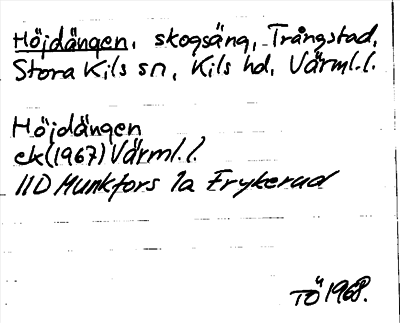 Höjdängen, skogsäng, Trångstad,
Stora Kils sn, Kils hd, Värml.l.
Höjdängen
ek(1967) Värml.l.
11D Munkfors 1a Frykerud
TÖ 1968.